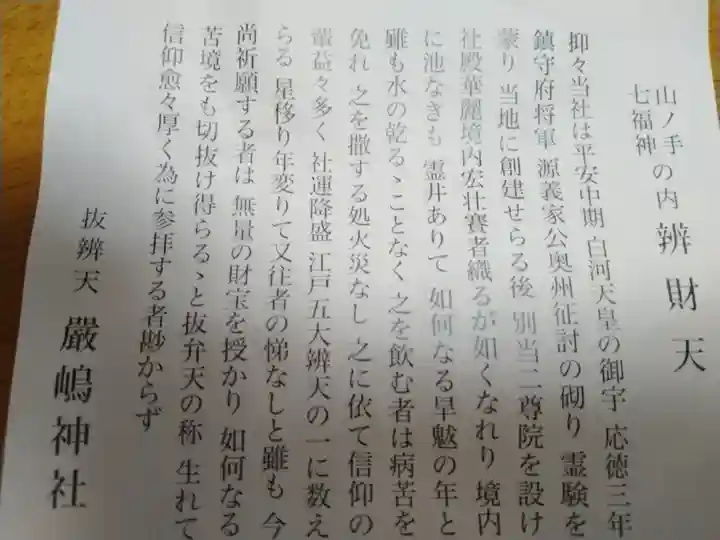 山ノ手の内
七福神
辨財天
抑々当社は平安中期 白河天皇の御宇 応徳三年
鎮守府将軍 源義家公奥州征討の砌り 霊験を
蒙り 当地に創建せらる後 別当二尊院を設け
社殿華麗境内宏壮賽者織るが如くなれり 境内
に池なきも 霊井ありて 如何なる旱魃の年と
雖も水の乾るゝことなく 之を飲む者は病苦を
免れ 之を撒する処火災なし 之に依て信仰の
輩益々多く 社運降盛 江戸五大辨天の一に数え
らる 星移り年変りて又往者の悌なしと雖も 今
尚祈願する者は 無量の財宝を授かり 如何なる
苦境をも切抜け得らるゝと抜弁天の称 生れて
信仰愈々厚く為に参拝する者尠からず
抜辨天 嚴嶋神社